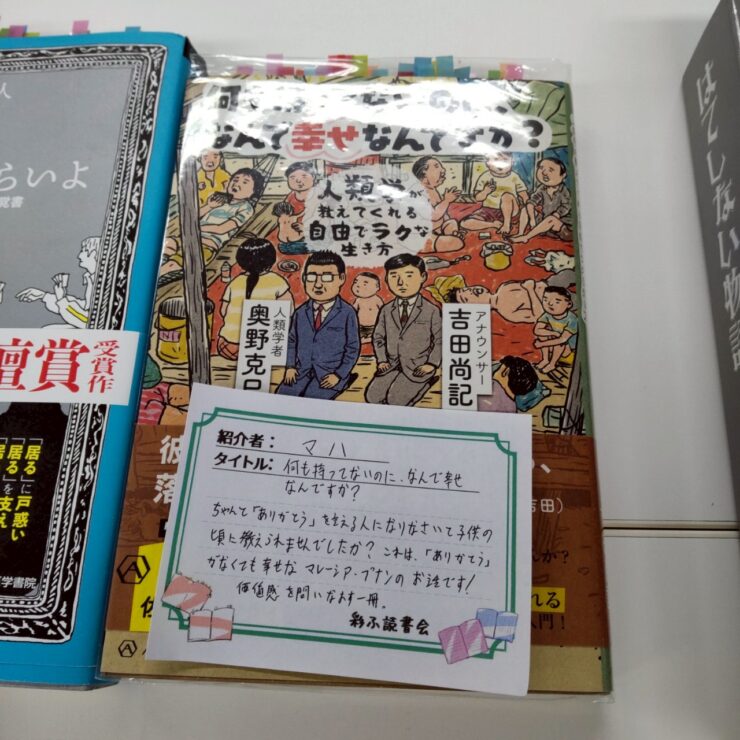 人
らいよ
覚書
賞受賞作
「居る」に
戸惑い
「居る」を
支え
医学書院
なんで幸せなんですか?
人類学が
教えてくれる
自由でラクな
生き方
人類学者
奥野克巳
アナウンサー
吉田尚記
彼
落
吉田)
んか?
れる
入門!
紹介者: マハ
タイトル: 何も持ってないのに、なんで幸せ
なんですか?
ちゃんと「ありがとう」を言える人になりなさいて子供の
頃に教えられませんでしたか? これは、「ありがとう」
がなくても幸せな マレーシア・プナンのお話です!
価値感を問いなおす一冊。
彩ふ読書会
はてしない物語